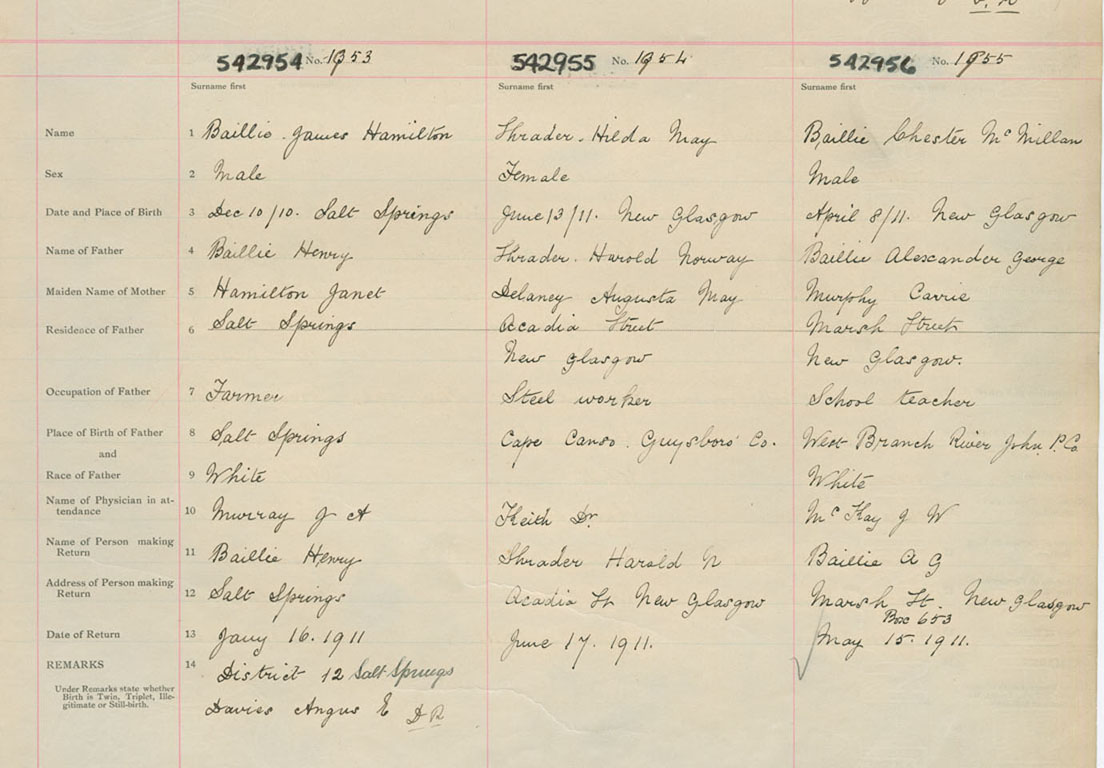 542954 No. 1953 542955 No. 1954 542956 No. 1955
Surname first Surname first Surname first
Name 1 Baillie. James Hamilton Shrader. Hilda May Baillie Chester Mc Millan
Sex 2 Male Female Male
Date and Place of Birth 3 Dec 10/10. Salt Springs June 13/11. New Glasgow April 8/11. New Glasgow
Name of Father 4 Baillie Henry Shrader. Harold Norway Baillie Alexander George
Maiden Name of Mother 5 Hamilton Janet Delaney Augusta May Murphy Carrie
Residence of Father 6 Salt Springs Acadia Street Marsh Street
New Glasgow New Glasgow.
Occupation of Father 7 Farmer Steel worker School teacher
Place of Birth of Father 8 Salt Springs Cape Canso. Guysboro' Co. West Branch River John P. Co
and
Race of Father 9 White White
Name of Physician in at-
tendance 10 Murray J A Keith Dr. Mc Kay J W
Name of Person making
Return 11 Baillie Henry Shrader Harold N Baillie A G
Address of Person making
Return 12 Salt Springs Acadia St New Glasgow Marsh St. New Glasgow
Box 653
Date of Return 13 Jany 16. 1911 June 17. 1911. May 15. 1911.
REMARKS 14 District 12 Salt Springs
Under Remarks state whether
Birth is Twin, Triplet, Ille-
gitimate or Still-birth.
Davies Angus E D R